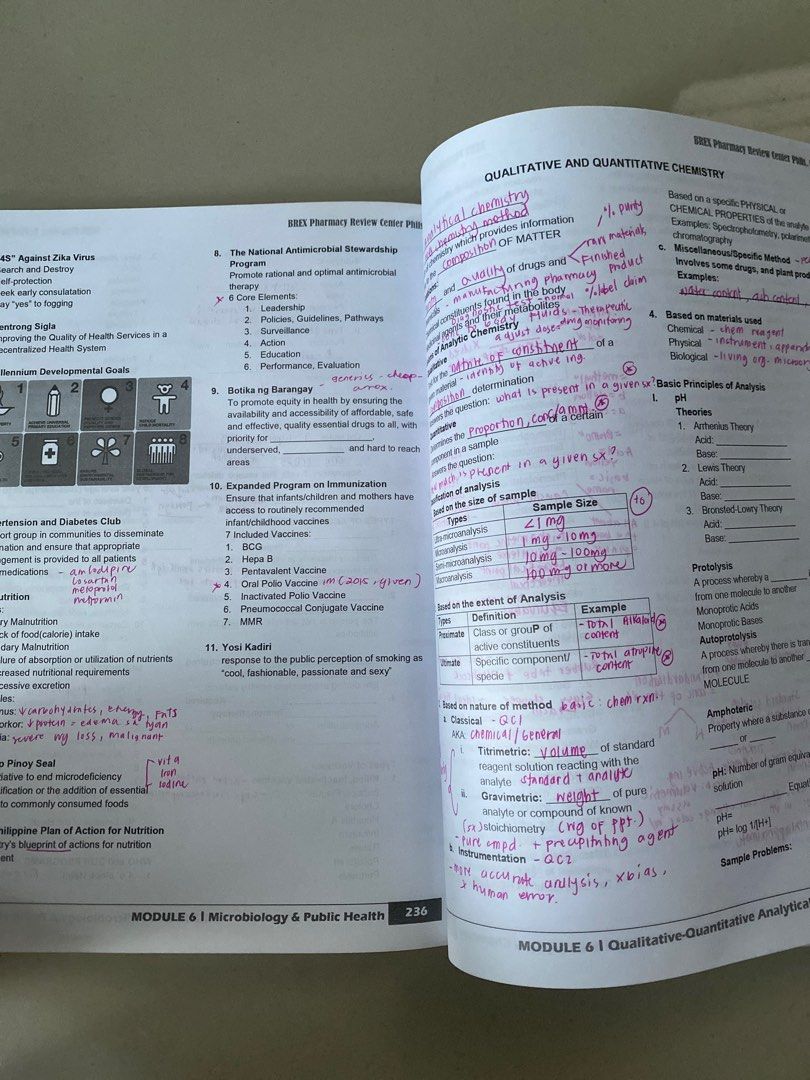 BREX Pharmacy Review Center Phils
4S" Against Zika Virus
earch and Destroy
elf-protection
eek early consulatation
ay "yes" to fogging
entrong Sigla
mproving the Quality of Health Services in a
ecentralized Health System
illennium Developmental Goals
ertension and Diabetes Club
ort group in communities to disseminate
mation and ensure that appropriate
agement is provided to all patients
medications - amlodipine
losartan
metoprolol
metformin
utrition
s:
ry Malnutrition
ck of food(calorie) intake
dary Malnutrition
lure of absorption or utilization of nutrients
creased nutritional requirements
cessive excretion
les:
mus: ↓carbohydrates, energy, fats
orkor: ↓protein = edema
ia: severe wg loss, malignant
o Pinoy Seal
iative to end microdeficiency
ification or the addition of essential
to commonly consumed foods
vit a
Iron
Iodine
hilippine Plan of Action for Nutrition
try's blueprint of actions for nutrition
ent
8. The National Antimicrobial Stewardship
Program
Promote rational and optimal antimicrobial
therapy
6 Core Elements:
1. Leadership
2. Policies, Guidelines, Pathways
3. Surveillance
4. Action
5. Education
6. Performance, Evaluation
9. Botika ng Barangay - generics - cheap
To promote equity in health by ensuring the
availability and accessibility of affordable, safe
and effective, quality essential drugs to all, with
priority for ________,
underserved, ________ and hard to reach
areas
10. Expanded Program on Immunization
Ensure that infants/children and mothers have
access to routinely recommended
infant/childhood vaccines
7 Included Vaccines:
1. BCG
2. Hepa B
3. Pentavalent Vaccine
4. Oral Polio Vaccine im (2016, given)
5. Inactivated Polio Vaccine
6. Pneumococcal Conjugate Vaccine
7. MMR
11. Yosi Kadiri
response to the public perception of smoking as
"cool, fashionable, passionate and sexy"
MODULE 6 I Microbiology & Public Health 236
BREX Pharmacy Review Center Phils.
QUALITATIVE AND QUANTITATIVE CHEMISTRY
analytical chemistry
chemistry method
chemistry which provides information
composition OF MATTER
and quality of drugs and
% purity
raw materials
Finished
product
- manufacturing pharmacy
% label claim
constituents found in the body
agents and their metabolites
body fluids - Therapeutic
adjust dose drug monitoring
of Analytic Chemistry
nature of constituent of a
material - identity of active ing.
determination
the question: what is present in a given sx?
quantitative
the proportion, conc/amnt. of a certain
in a sample
the question:
much is present in a given sx?
of analysis
Based on the size of sample
Types Sample Size
Ultra-microanalysis <1mg
Microanalysis 1mg - 10mg
Semi-microanalysis 10mg - 100mg
Macroanalysis 100mg or more
Based on the extent of Analysis
Types Definition Example
Proximate Class or grouP of active constituents - Total Alkaloid content
Ultimate Specific component/ specie - Total atropine content
Based on nature of method basic: chem rxn
a. Classical - QC1
AKA: chemical/General
i. Titrimetric: volume of standard
reagent solution reacting with the
analyte standard + analyte
ii. Gravimetric: weight of pure
analyte or compound of known
(sx) stoichiometry (wg of ppt.)
- pure cmpd. + precipitating agent
b. Instrumentation - QC2
- more accurate analysis, x bias,
x human error.
Based on a specific PHYSICAL or
CHEMICAL PROPERTIES of the analyte
Examples: Spectrophotometry, polarime
chromatography
c. Miscellaneous/Specific Method
Involves some drugs, and plant prod
Examples:
water content, ash content
4. Based on materials used
Chemical - chem reagent
Physical - instrument, appara
Biological - living org. micro
Basic Principles of Analysis
I. pH
Theories
1. Arrhenius Theory
Acid: ________
Base: ________
2. Lewis Theory
Acid: ________
Base: ________
3. Bronsted-Lowry Theory
Acid: ________
Base: ________
Protolysis
A process whereby a
from one molecule to another
Monoprotic Acids
Monoprotic Bases
Autoprotolysis
A process whereby there is tran
from one molecule to another
MOLECULE
Amphoteric
Property where a substance
____ or ____
pH: Number of gram equiva
solution
Equat
pH=
pH= log 1/[H+]
Sample Problems:
MODULE 6 I Qualitative-Quantitative Analytical